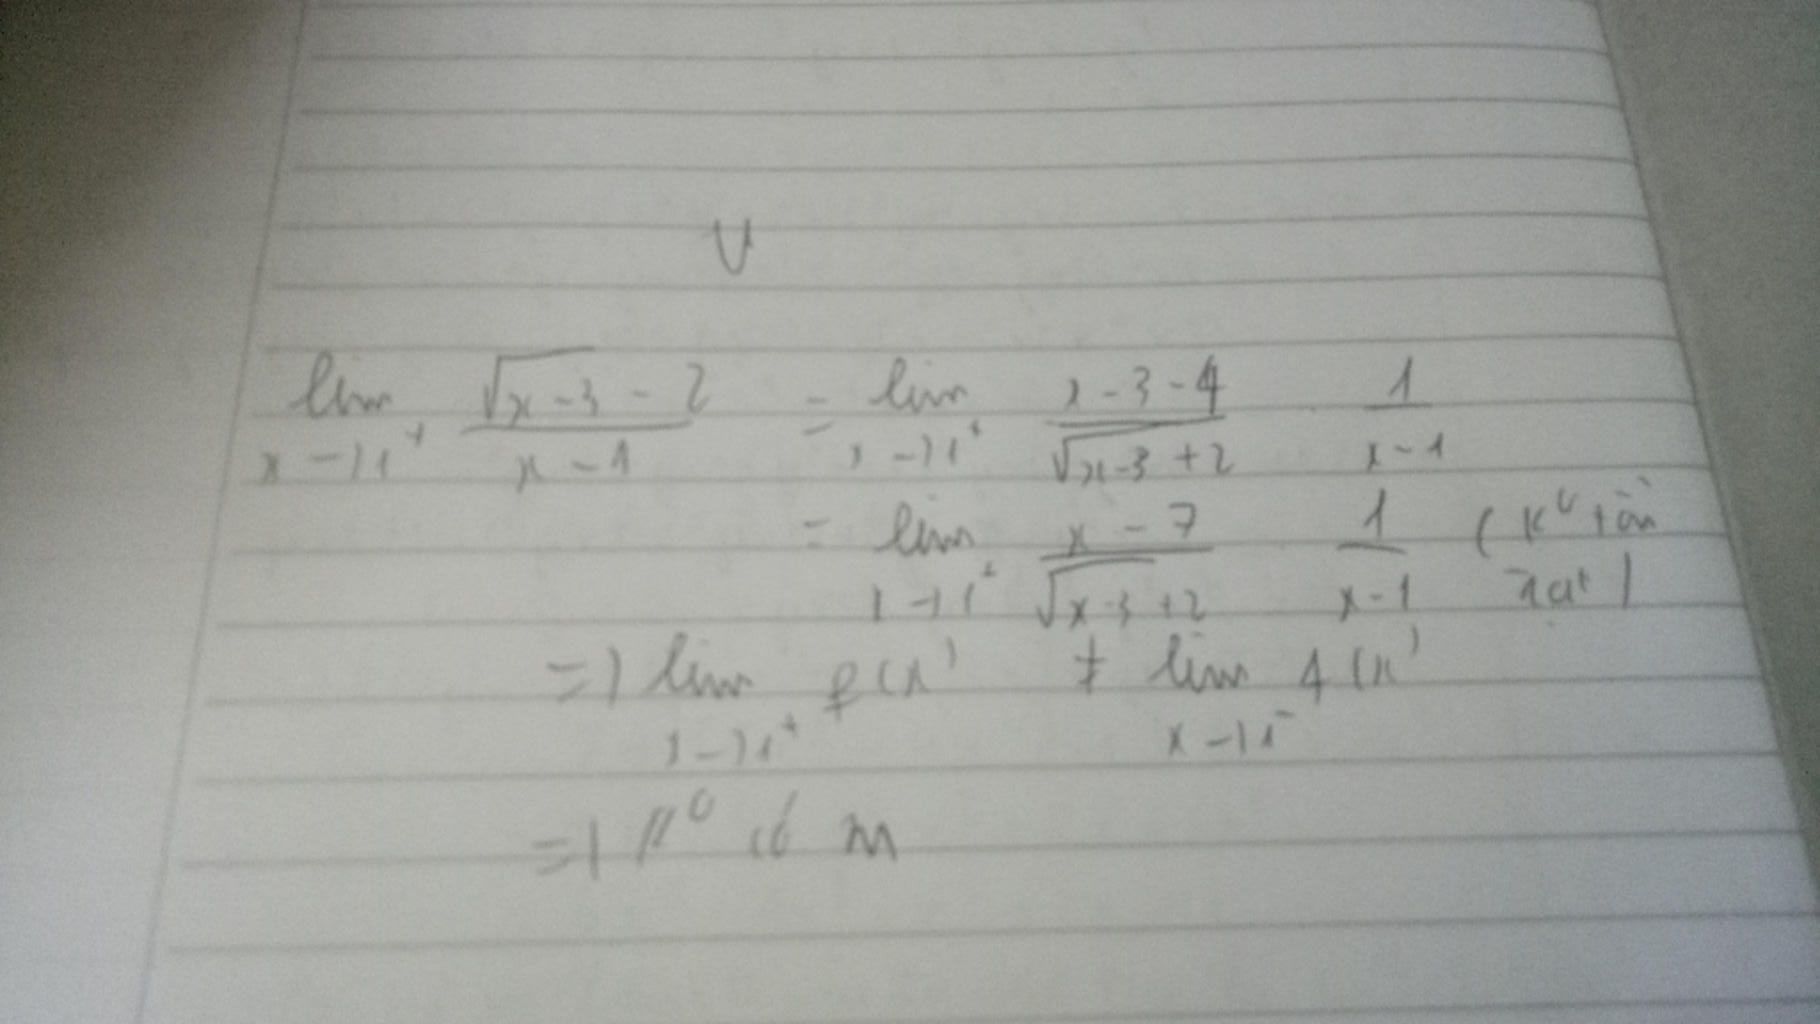 V
lim x→1⁺ (√x-3 - 2)/(x-1) = lim x→1⁺ (x-3-4)/(√x-3 +2) 1/(x-1)
= lim x→1⁺ (x-7)/(√x-3 +2) 1/(x-1) (K⁰ tồn
tại)
=) lim x→1⁺ f(x) ≠ lim x→1⁻ f(x)
=) K⁰ có m